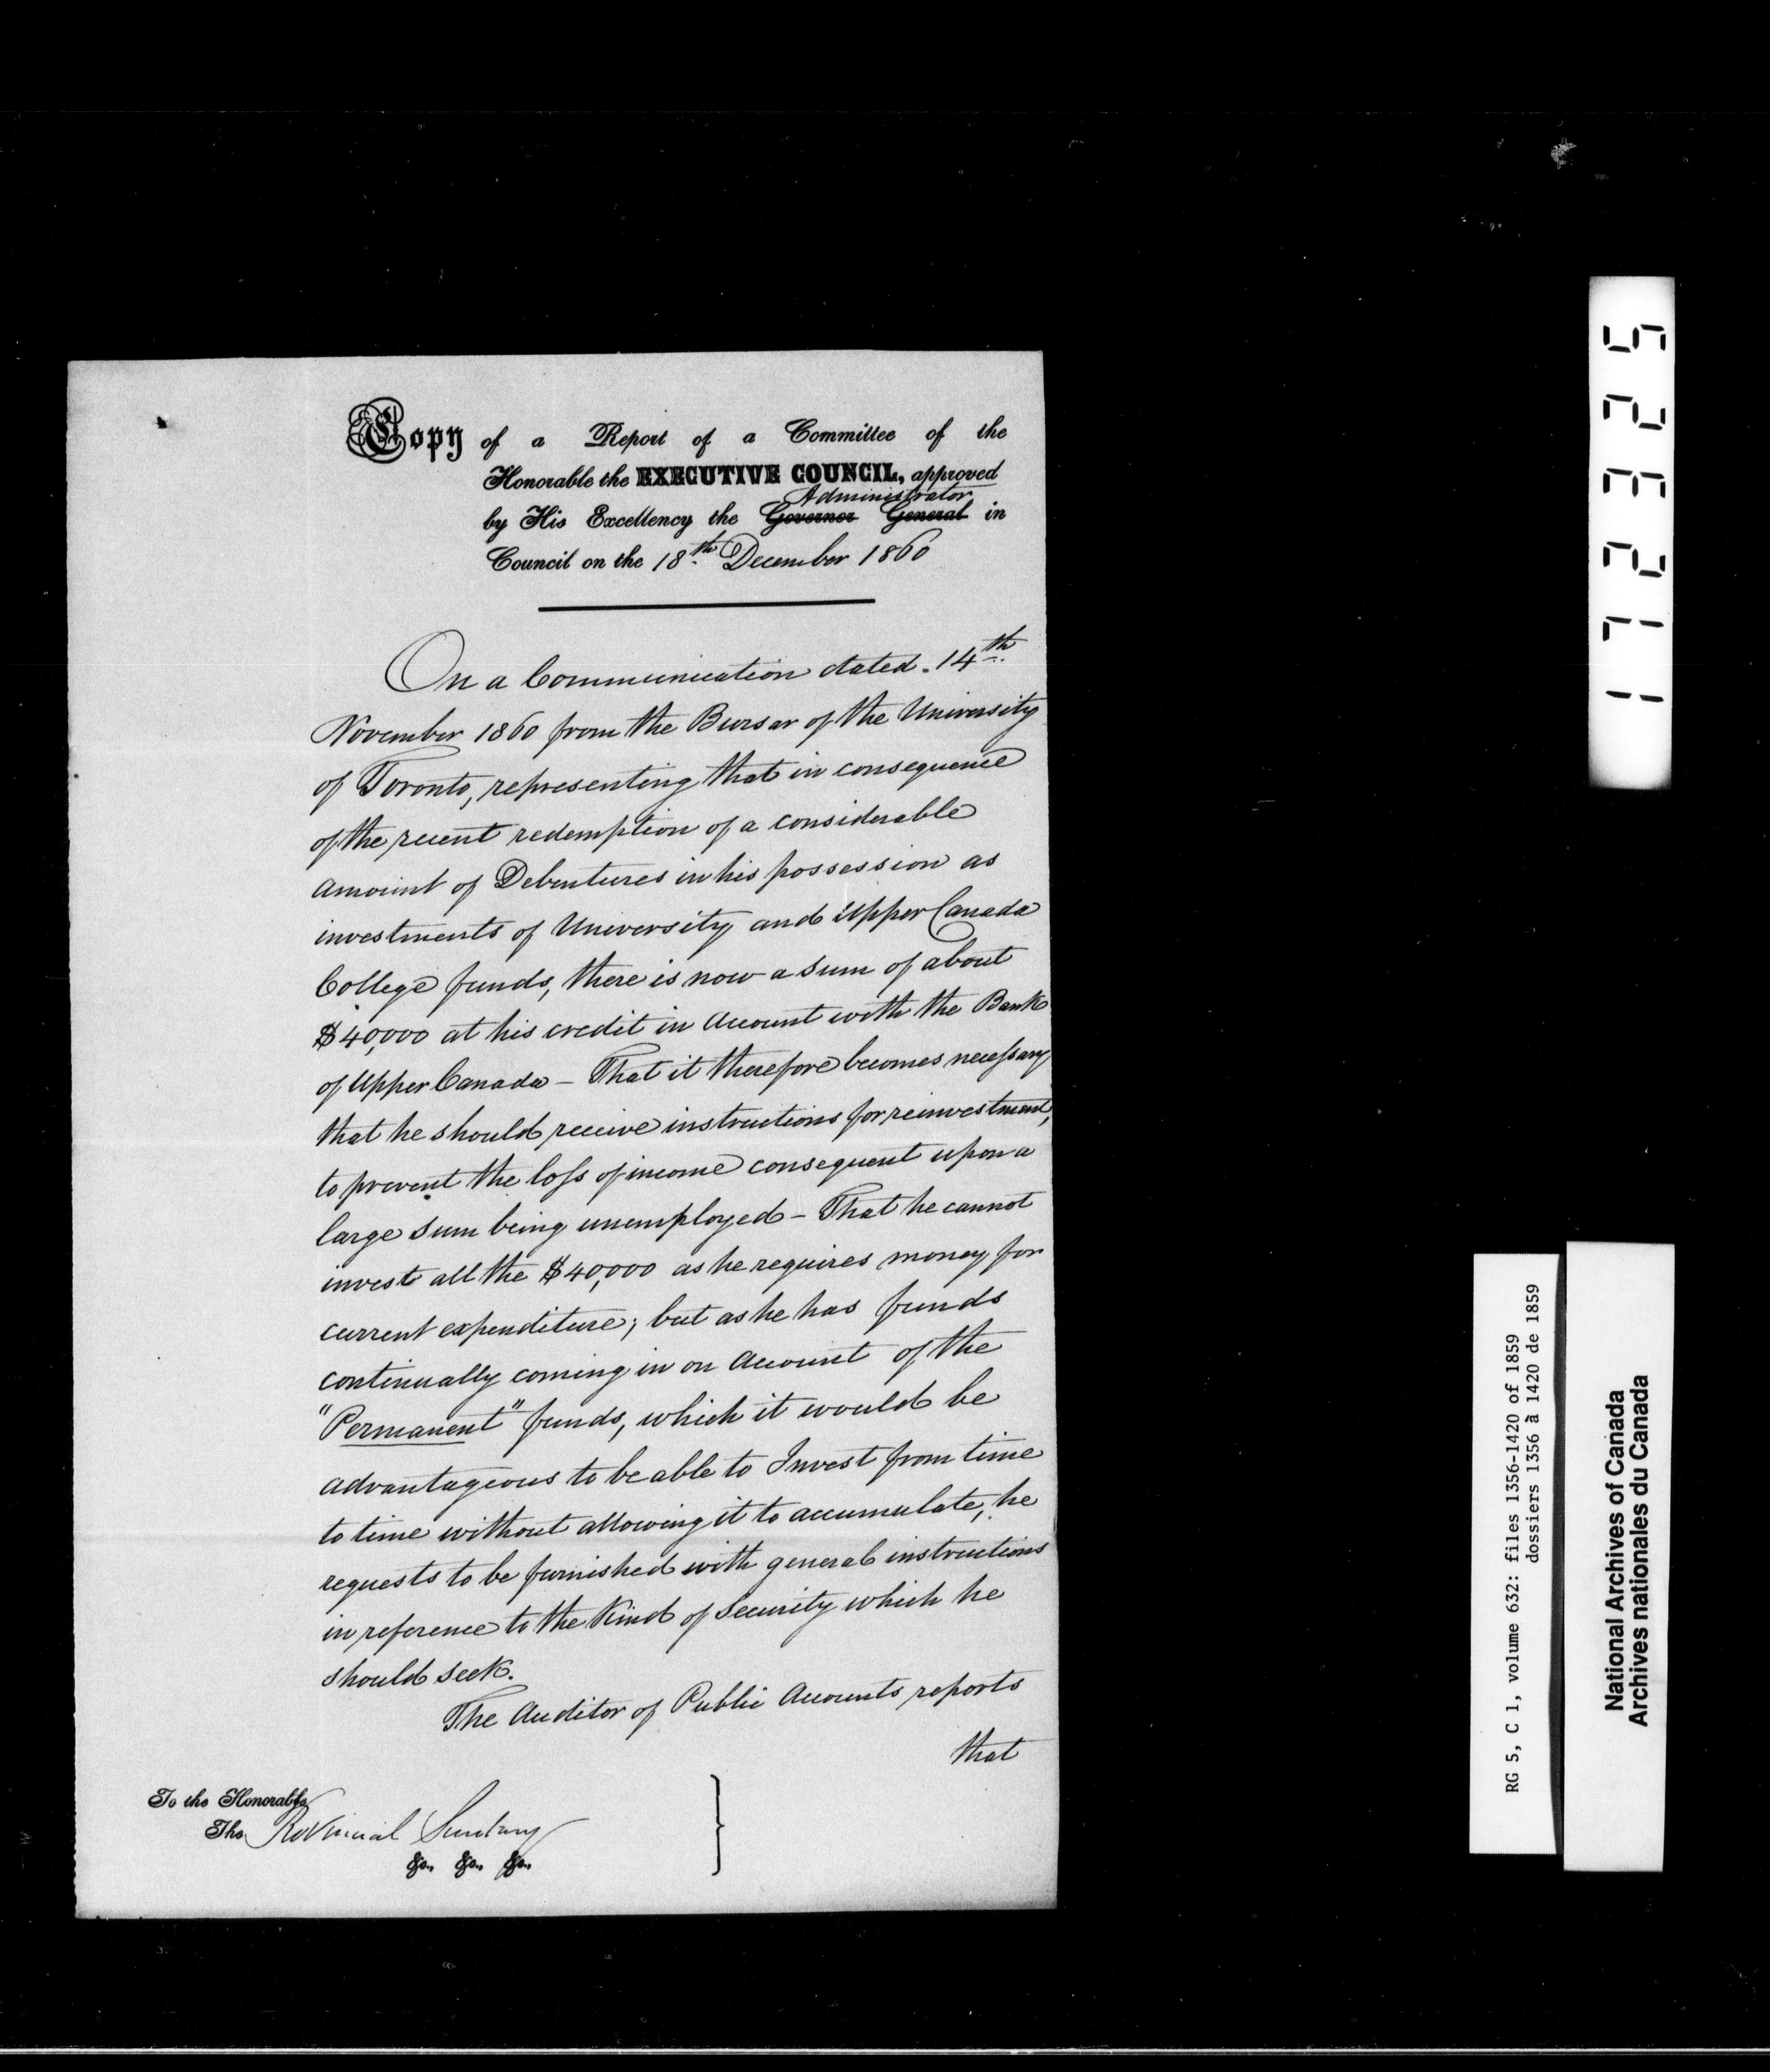 Copy of a Report of a Committee of the
Honorable the EXECUTIVE COUNCIL, approved
Administrator
by His Excellency the Governor General in
Council on the 18th December 1860
On a Communication dated 14th
November 1860 from the Bursar of the University
of Toronto, representing that in consequence
of the recent redemption of a considerable
amount of Debentures in his possession as
investments of University and Upper Canada
College funds, there is now a sum of about
$40,000 at his credit in Account with the Bank
of Upper Canada – That it therefore becomes necessary
that he should receive instructions for reinvestment,
to prevent the loss of income consequent upon a
large sum being unemployed – That he cannot
invest all the $40,000 as he requires money for
current expenditure; but as he has funds
continually coming in on Account of the
"Permanent" funds, which it would be
advantageous to be able to Invest from time
to time without allowing it to accumulate, he
requests to be furnished with general instructions
in reference to the Kind of Security which he
should seek.
The Auditor of Public Accounts reports
that
To the Honorable
The Provincial Secretary
&c., &c., &c.,
172325
RG 5, C 1, volume 632: files 1356-1420 of 1859
dossiers 1356 à 1420 de 1859
National Archives of Canada
Archives nationales du Canada